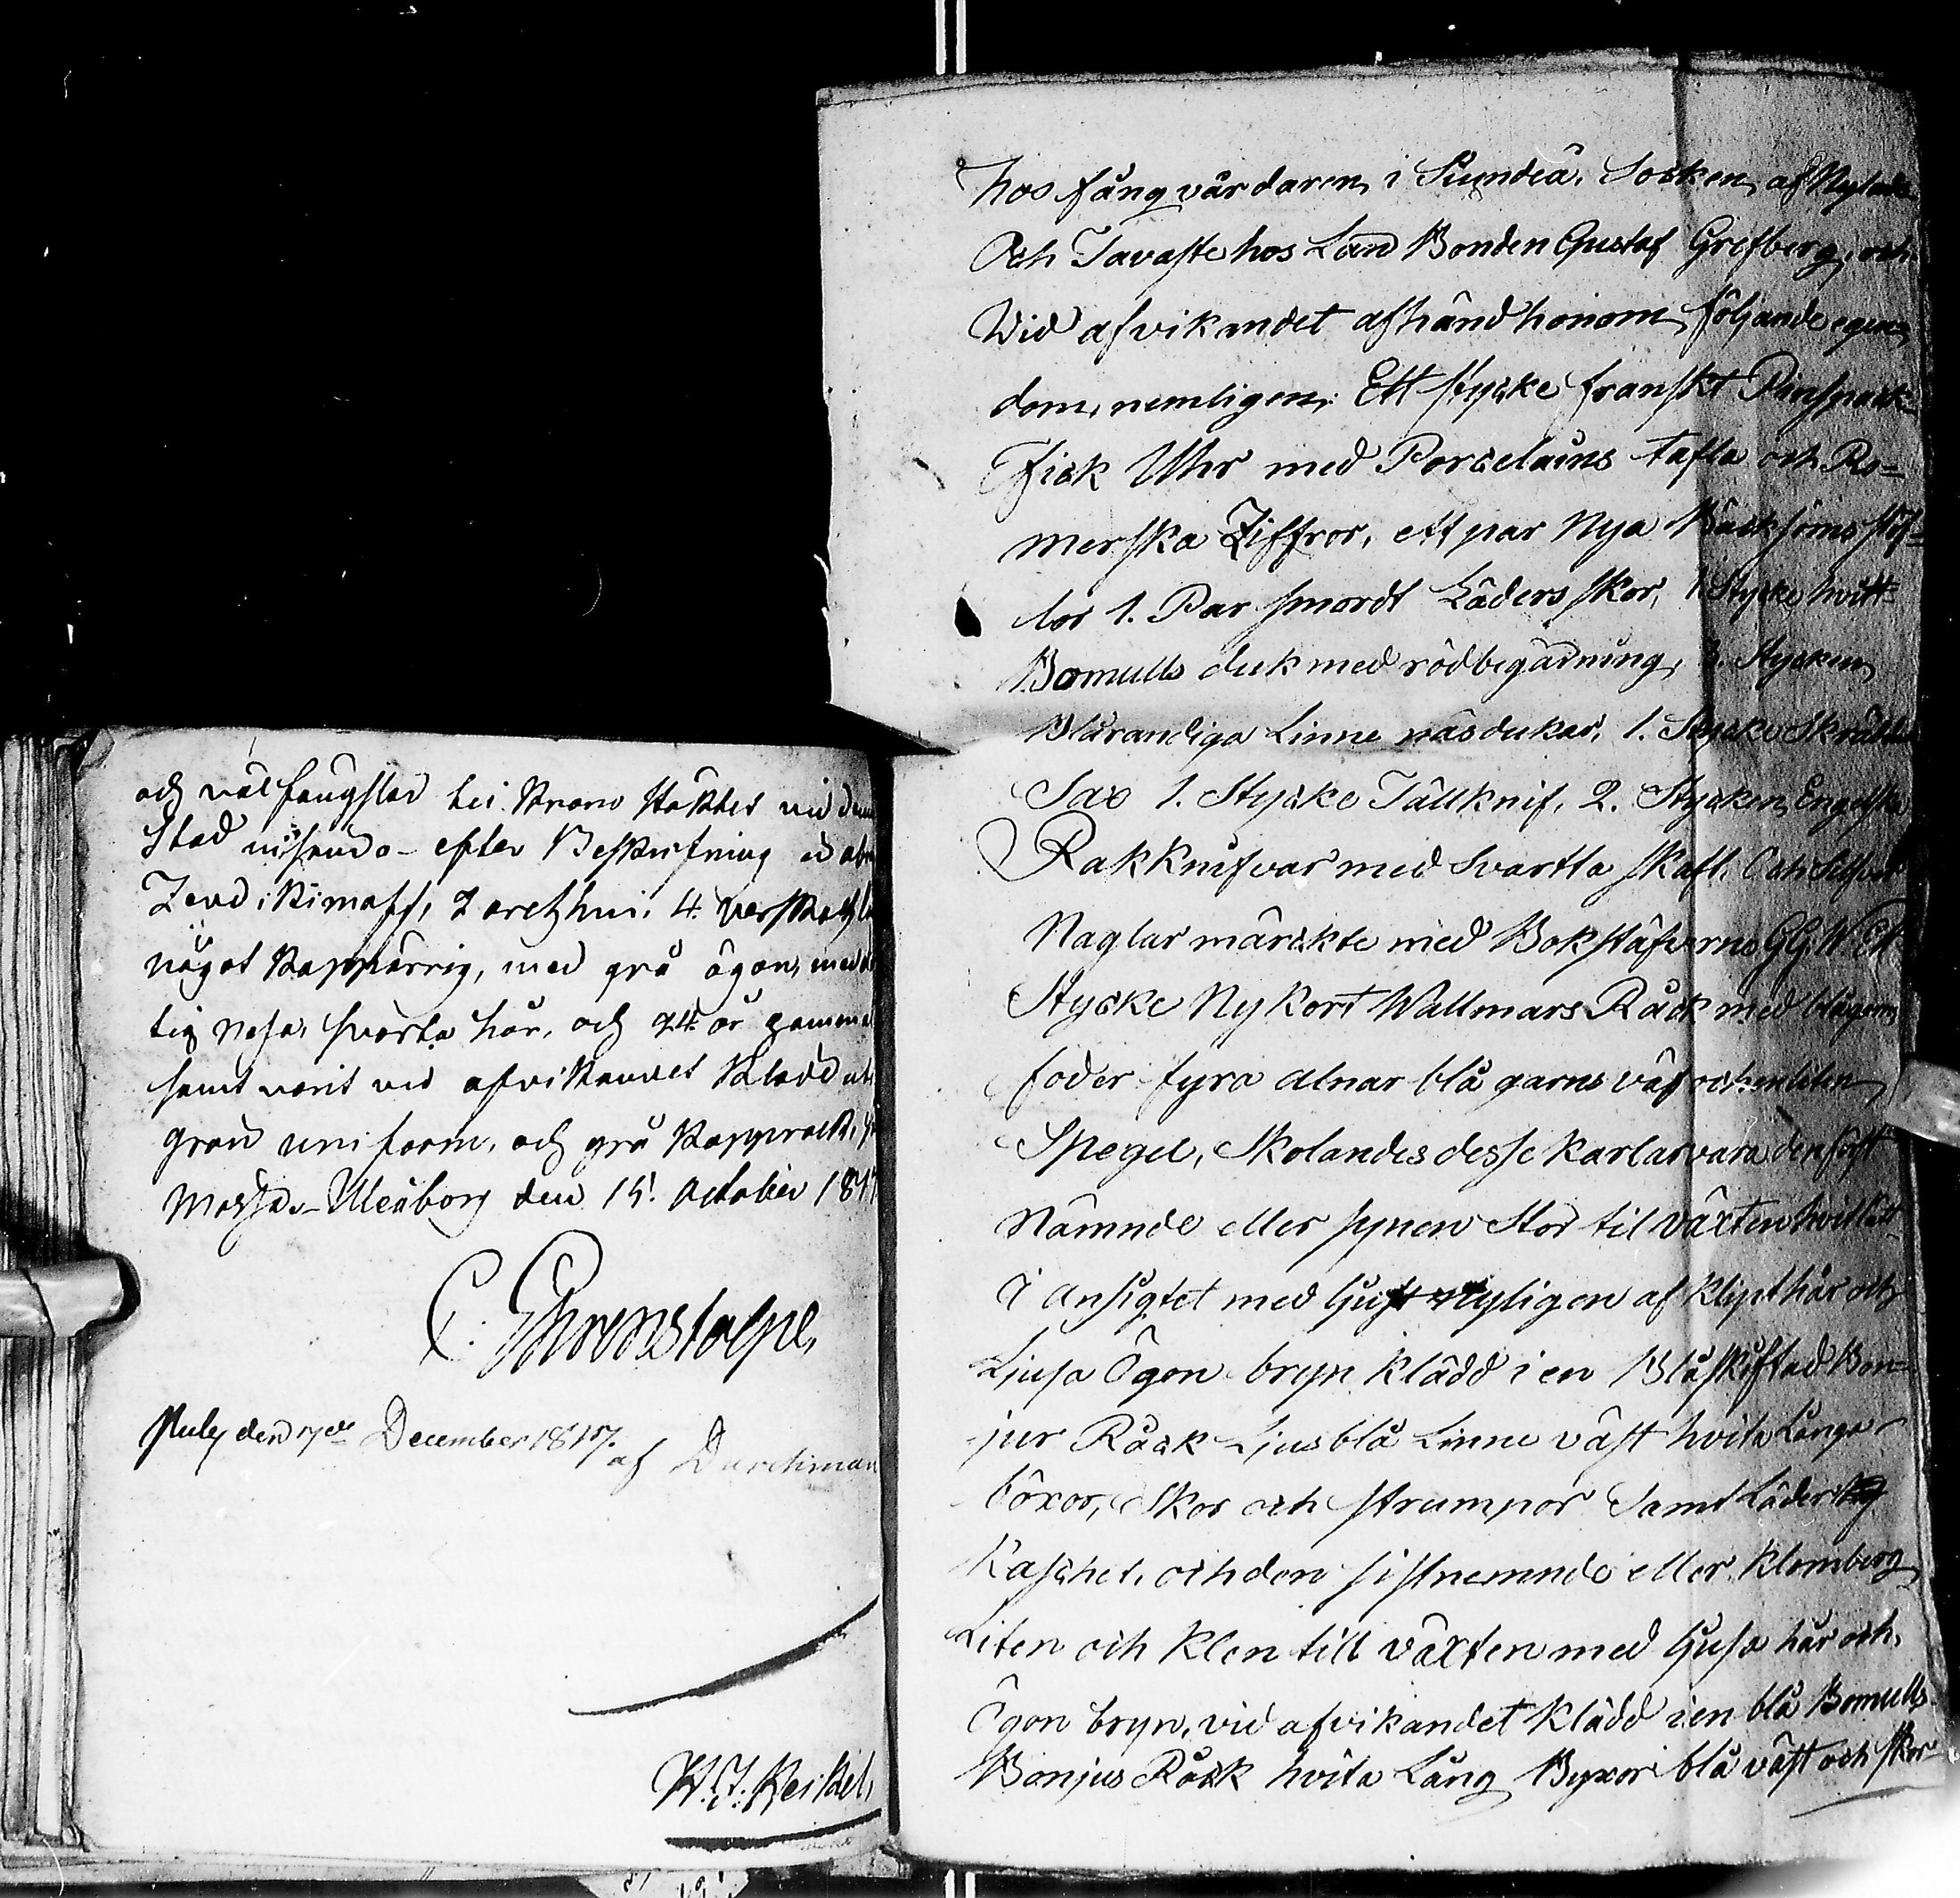 och väl fängslad till Krono Häktet vid denna
Stad insända - efter Beskrifning är
2 arch: 4 verschok
något kopparrig, med grå ögon, med
tig näsa, svarta hår, och 24 år gammal
samt varit vid afvikandet klädd uti
grön uniform, och grå kapprock,
Mössa. Uleåborg den 15. October 1817
C. Ehrenstolpe,
Puby den 7de December 1817.
af Durchman
W. J. Keckel,
hos fångvårdaren i Siundeå Socken, af Nylands
Och Tavastehus Län Bonden Gustaf Grefberg, och
Wid afvikandet afhänd honom följande egen
dom, nemligen: Ett stycke franskt
Fick Uhr med Porcelains tafla och Ro-
merska Ziffror, ett par Nya Bäcksöms stöf-
lor 1. Par smordt Läders skor, 1 Stycke hvitt
Bomulls duk med röd begärning, 3. Stycken
Blårandiga Linne näsdukar, 1. Stycke Skräddare
Sax 1. Stycke Tällknif, 2. Stycken Engelska
Rakknifvar med Svartta skaft, Och Silfver
Naglar märckte med Bokstäfverne G.G.W. Ett
Stycke Ny kort Wallmars Råck med blågarns
foder fyra alnar blå garns väf och en liten
Spegel, Skolandes desse karlar vara den först
Nämnde eller synen Stor til växten hvitlätt
i ansigtet med ljust nyligen af klipt hår och
Ljusa Ögon bryn klädd i en Blåskiftad Bon-
jur Råck Ljusblå Linne väst hvita Långa
böxor, Skor och strumpor Samt Läder
Kaschet, och den sistnemnde eller Klomberg
Liten och klen till växten med ljusa hår och
Ögon bryn, vid afvikandet klädd i en blå Bomulls
Bonjus Råck hvita Lång Byxor blå väst och skor